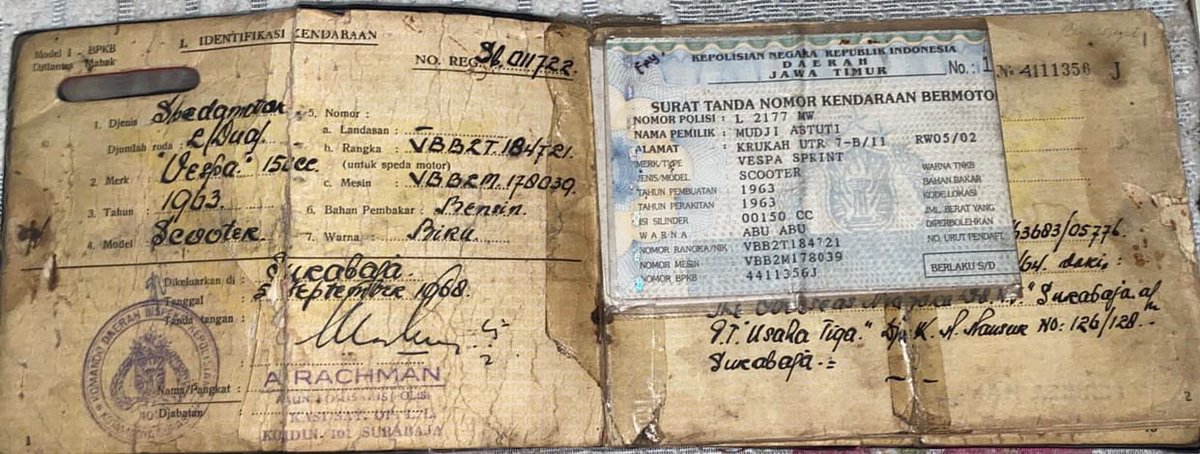 Model I - BPKB
Ditlantas Mabak
I. IDENTIFIKASI KENDARAAN
NO. REG. Sb. 011722.
1. Djenis : Spedamotor
Djumlah roda : 2/Dua/
2. Merk : "Vespa" 150cc
3. Tahun : 1963.
4. Model : Scooter.
5. Nomor :
a. Landasan : —
b. Rangka : VBB2T.184721.
(untuk speda motor)
c. Mesin : VBB2M.178039.
6. Bahan Pembakar : Bensin.
7. Warna : Biru.
Dikeluarkan di : Surabaja.
Tanggal : 5 September 1968.
Tanda tangan :
Nama/Pangkat :
A RACHMAN
Djabatan :
KOMDIN. 101 SURABAJA
1
KEPOLISIAN NEGARA REPUBLIK INDONESIA
DAERAH
JAWA TIMUR
No. : 1
No 4111356 J
SURAT TANDA NOMOR KENDARAAN BERMOTO
NOMOR POLISI : L 2177 MW
NAMA PEMILIK : MUDJI ASTUTI
ALAMAT : KRUKAH UTR 7-B/11 RW05/02
MERK/TYPE : VESPA SPRINT
JENIS/MODEL : SCOOTER
TAHUN PEMBUATAN : 1963
TAHUN PERAKITAN : 1963
ISI SILINDER : 00150 CC
WARNA : ABU ABU
NOMOR RANGKA/NIK : VBB2T184721
NOMOR MESIN : VBB2M178039
NOMOR BPKB : 4411356J
WARNA TNKB
BAHAN BAKAR
KODE LOKASI
JML. BERAT YANG
DIPERBOLEHKAN
NO. URUT PENDAFT.
BERLAKU S/D
63683/05776.
/64. dari :
Surabaja
P.T. "Usaha Tiga." Djl. K. H. Mansur No: 126/128.-
Surabaja.=
2